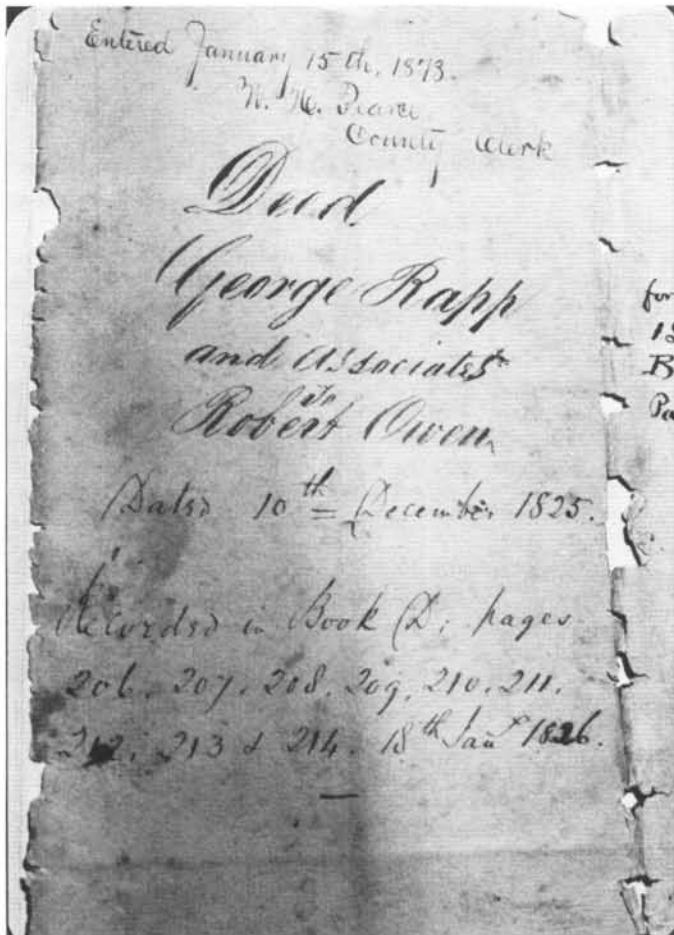 Entered January 15th, 1873.
County Clerk
Deed
George Rapp
and associates
to
Robert Owen
Dated 10th December 1825.
Recorded in Book D; pages
206. 207. 208. 209. 210. 211.
212, 213 & 214. 18th Jany 1826.
for
B